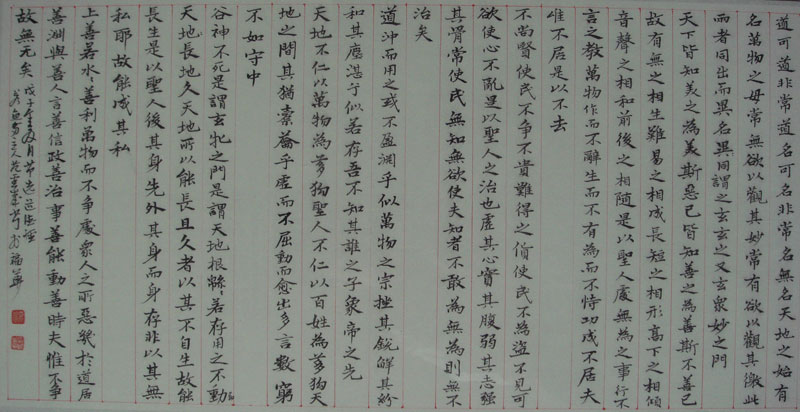 道可道非常道名可名非常名無名天地之始有
名萬物之母常無欲以觀其妙常有欲以觀其徼此
兩者同出而異名異同謂之玄玄之又玄衆妙之門
天下皆知美之為美斯惡已皆知善之為善斯不善已
故有無之相生難易之相成長短之相形高下之相傾
音聲之相和前後之相隨是以聖人處無為之事行不
言之教萬物作而不辭生而不有為而不恃功成不居夫
唯不居是以不去
不尚賢使民不爭不貴難得之貨使民不為盜不見可
欲使心不亂是以聖人之治也虛其心實其腹弱其志強
其骨常使民無知無欲使夫知者不敢為無為則無不
治矣
道沖而用之或不盈淵乎似萬物之宗挫其銳解其紛
和其塵湛乎似若存吾不知其誰之子象帝之先
天地不仁以萬物為芻狗聖人不仁以百姓為芻狗天
地之間其猶橐籥乎虛而不屈動而愈出多言數窮
不如守中
谷神不死是謂玄牝之門是謂天地根綿綿若存用之不勤
天地長地久天地所以能長且久者以其不自生故能
長生是以聖人後其身先外其身而身存非以其無
私耶故能成其私
上善若水水善利萬物而不爭處衆人之所惡幾於道居
善淵與善人言善信政善治事善能動善時夫惟不爭
故無尤矣 戊子年